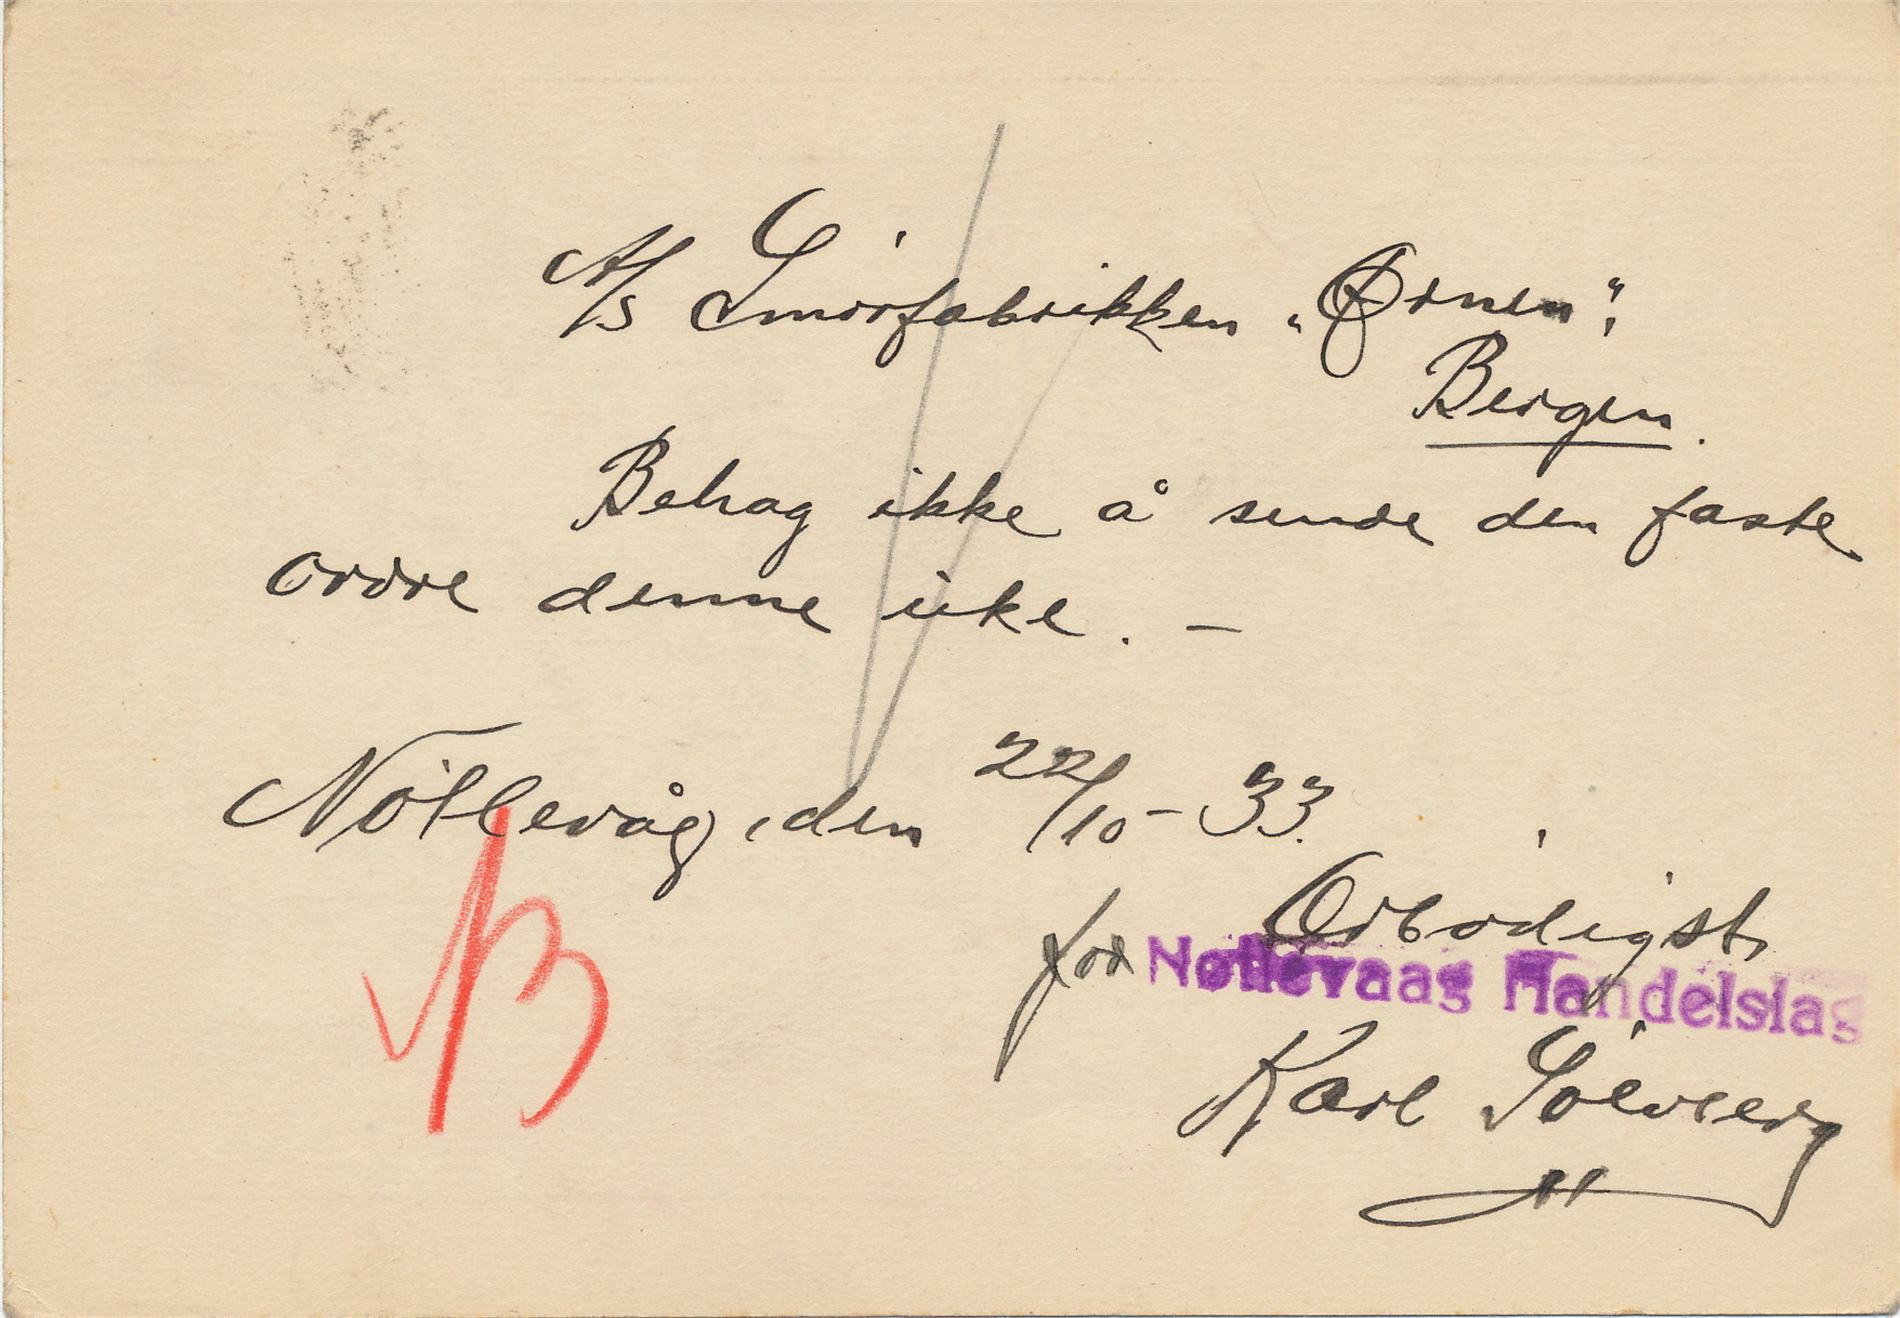 A/S Smörfabrikken „Ørnen“,
Bergen.
Behag ikke å sende den faste
ordre denne uke. —
Nötlevåg, den 22/10 - 33.
Ørbödigst,
for Nøtlevaag Handelslag
Karl Sölvberg